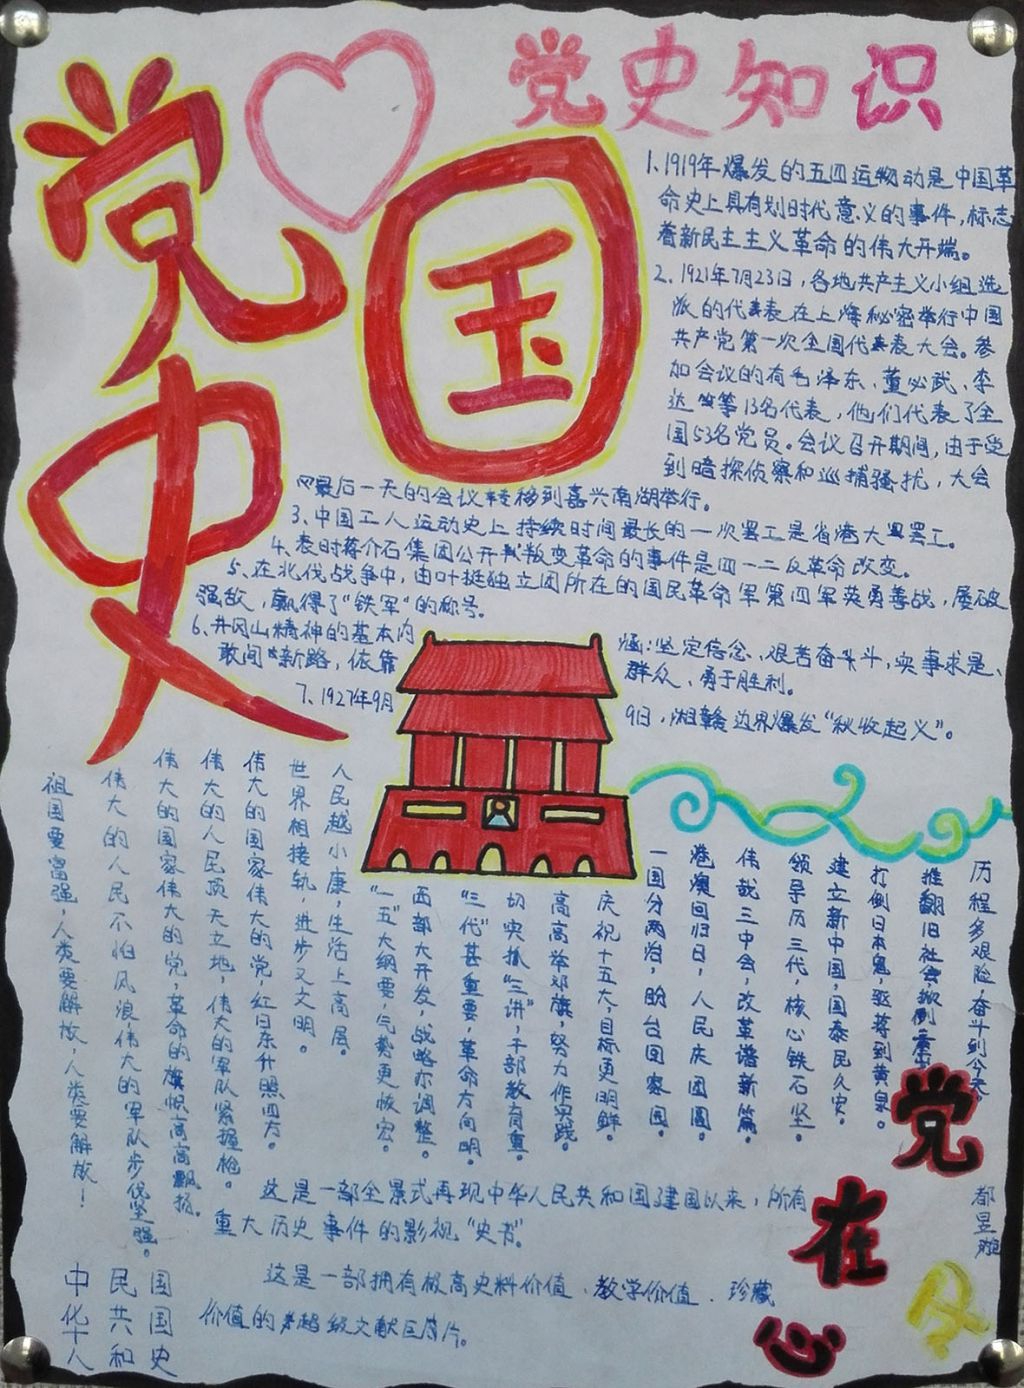 党史
国
党史知识
1、1919年爆发的五四运动是中国革
命史上具有划时代意义的事件，标志
着新民主主义革命的伟大开端。
2、1921年7月23日，各地共产主义小组选
派的代表在上海秘密举行中国
共产党第一次全国代表大会。参
加会议的有毛泽东、董必武、李
达等13名代表，他们代表了全
国53名党员。会议召开期间，由于受
到暗探侦察和巡捕骚扰，大会
最后一天的会议转移到嘉兴南湖举行。
3、中国工人运动史上持续时间最长的一次罢工是省港大罢工。
4、表时蒋介石集团公开叛变革命的事件是四一二反革命改变。
5、在北伐战争中，由叶挺独立团所在的国民革命军第四军英勇善战，屡破
强敌，赢得了“铁军”的称号。
6、井冈山精神的基本内涵：坚定信念、艰苦奋斗，实事求是、
敢闯新路，依靠群众、勇于胜利。
7、1927年9月9日，湘赣边界爆发“秋收起义”。
历程多艰险，奋斗到今天。
推翻旧社会，掀倒
打倒日本鬼，驱蒋到黄泉。
建立新中国，国泰民久安。
领导历三代，核心铁石坚。
伟哉三中会，改革谱新篇。
港澳回归日，人民庆团圆。
一国分两治，盼台回家园。
庆祝十五大，目标更明鲜。
高高举邓旗，努力作实践。
切实抓“三讲”，干部教育重。
“三代”甚重要，革命方向明。
西部大开发，战略亦调整。
“一五”大纲要，气势更恢宏。
人民越小康，生活上高层。
世界相接轨，进步又文明。
伟大的国家伟大的党，红日东升照四方。
伟大的人民顶天立地，伟大的军队紧握枪。
伟大的国家伟大的党，革命的旗帜高高飘扬。
伟大的人民不怕风浪，伟大的军队步伐坚强。
祖国要富强，人类要解放，人类要解放！
这是一部全景式再现中华人民共和国建国以来，所有
重大历史事件的影视“史书”。
这是一部拥有极高史料价值、教学价值、珍藏
价值的超级文献巨片。
中华人
民共和
国国史
党在心
都昱